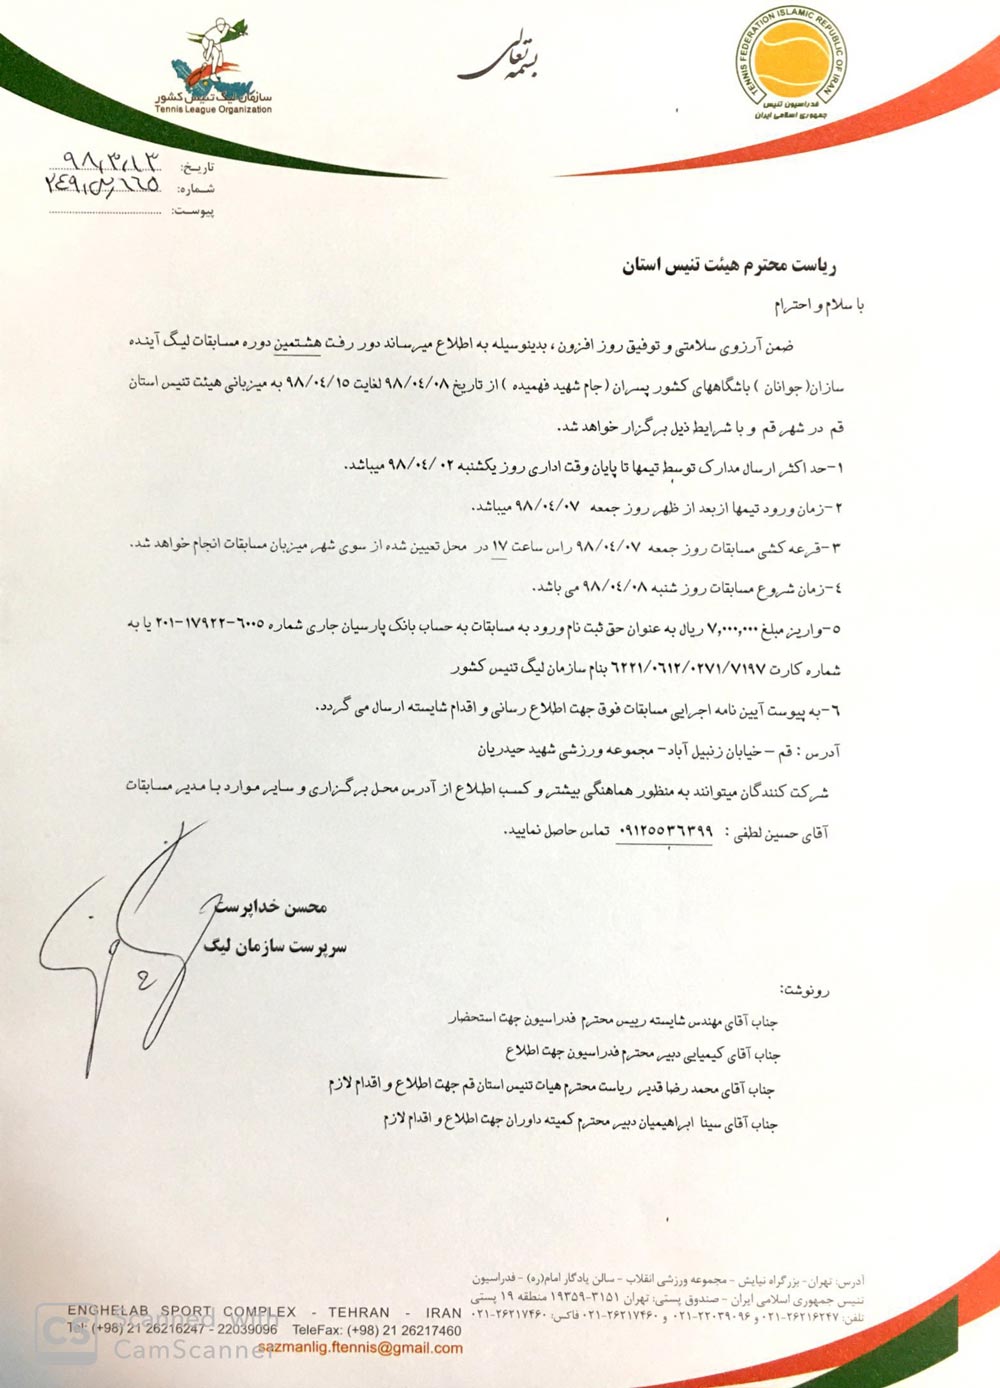 بسمه تعالی
TENNIS FEDERATION ISLAMIC REPUBLIC OF IRAN
فدراسیون تنیس
جمهوری اسلامی ایران
سازمان لیگ تنیس کشور
Tennis League Organization
تاریخ: ۹۸/۳/۱۳
شماره:
پیوست:
ریاست محترم هیئت تنیس استان
با سلام و احترام
ضمن آرزوی سلامتی و توفیق روز افزون ، بدینوسیله به اطلاع میرساند دور رفت هشتمین دوره مسابقات لیگ آینده
سازان(جوانان ) باشگاههای کشور پسران (جام شهید فهمیده ) از تاریخ ۹۸/۰۴/۰۸ لغایت ۹۸/۰۴/۱۵ به میزبانی هیئت تنیس استان
قم در شهر قم و با شرایط ذیل برگزار خواهد شد.
۱-حد اکثر ارسال مدارک توسط تیمها تا پایان وقت اداری روز یکشنبه ۹۸/۰۴/۰۲ میباشد.
۲-زمان ورود تیمها ازبعد از ظهر روز جمعه ۹۸/۰۴/۰۷ میباشد.
۳-قرعه کشی مسابقات روز جمعه ۹۸/۰۴/۰۷ راس ساعت ۱۷ در محل تعیین شده از سوی شهر میزبان مسابقات انجام خواهد شد.
۴-زمان شروع مسابقات روز شنبه ۹۸/۰۴/۰۸ می باشد.
۵-واریز مبلغ ۷,۰۰۰,۰۰۰ ریال به عنوان حق ثبت نام ورود به مسابقات به حساب بانک پارسیان جاری شماره ۶۰۰۵-۱۷۹۲۲-۲۰۱ یا به
شماره کارت ۶۲۲۱/۰۶۱۲/۰۲۷۱/۷۱۹۷ بنام سازمان لیگ تنیس کشور
۶-به پیوست آیین نامه اجرایی مسابقات فوق جهت اطلاع رسانی و اقدام شایسته ارسال می گردد.
آدرس : قم – خیابان زنبیل آباد- مجموعه ورزشی شهید حیدریان
شرکت کنندگان میتوانند به منظور هماهنگی بیشتر و کسب اطلاع از آدرس محل برگزاری و سایر موارد با مدیر مسابقات
آقای حسین لطفی : ۰۹۱۲۵۵۳۶۳۹۹ تماس حاصل نمایید.
محسن خداپرست
سرپرست سازمان لیگ
رونوشت:
جناب آقای مهندس شایسته رییس محترم فدراسیون جهت استحضار
جناب آقای کیمیایی دبیر محترم فدراسیون جهت اطلاع
جناب آقای محمد رضا قدیر ریاست محترم هیات تنیس استان قم جهت اطلاع و اقدام لازم
جناب آقای سینا ابراهیمیان دبیر محترم کمیته داوران جهت اطلاع و اقدام لازم
آدرس: تهران- بزرگراه نیایش - مجموعه ورزشی انقلاب - سالن یادگار امام(ره) - فدراسیون
تنیس جمهوری اسلامی ایران - صندوق پستی: تهران ۳۱۵۱-۱۹۳۵۹ منطقه ۱۹ پستی
تلفن: ۲۶۲۱۶۲۴۷-۰۲۱ و ۲۲۰۳۹۰۹۶-۰۲۱ و ۲۶۲۱۷۴۶۰-۰۲۱ فاکس: ۲۶۲۱۷۴۶۰-۰۲۱
ENGHELAB SPORT COMPLEX - TEHRAN - IRAN
Tel: (+98) 21 26216247 - 22039096 TeleFax: (+98) 21 26217460
sazmanlig.ftennis@gmail.com
CS Scanned with
CamScanner